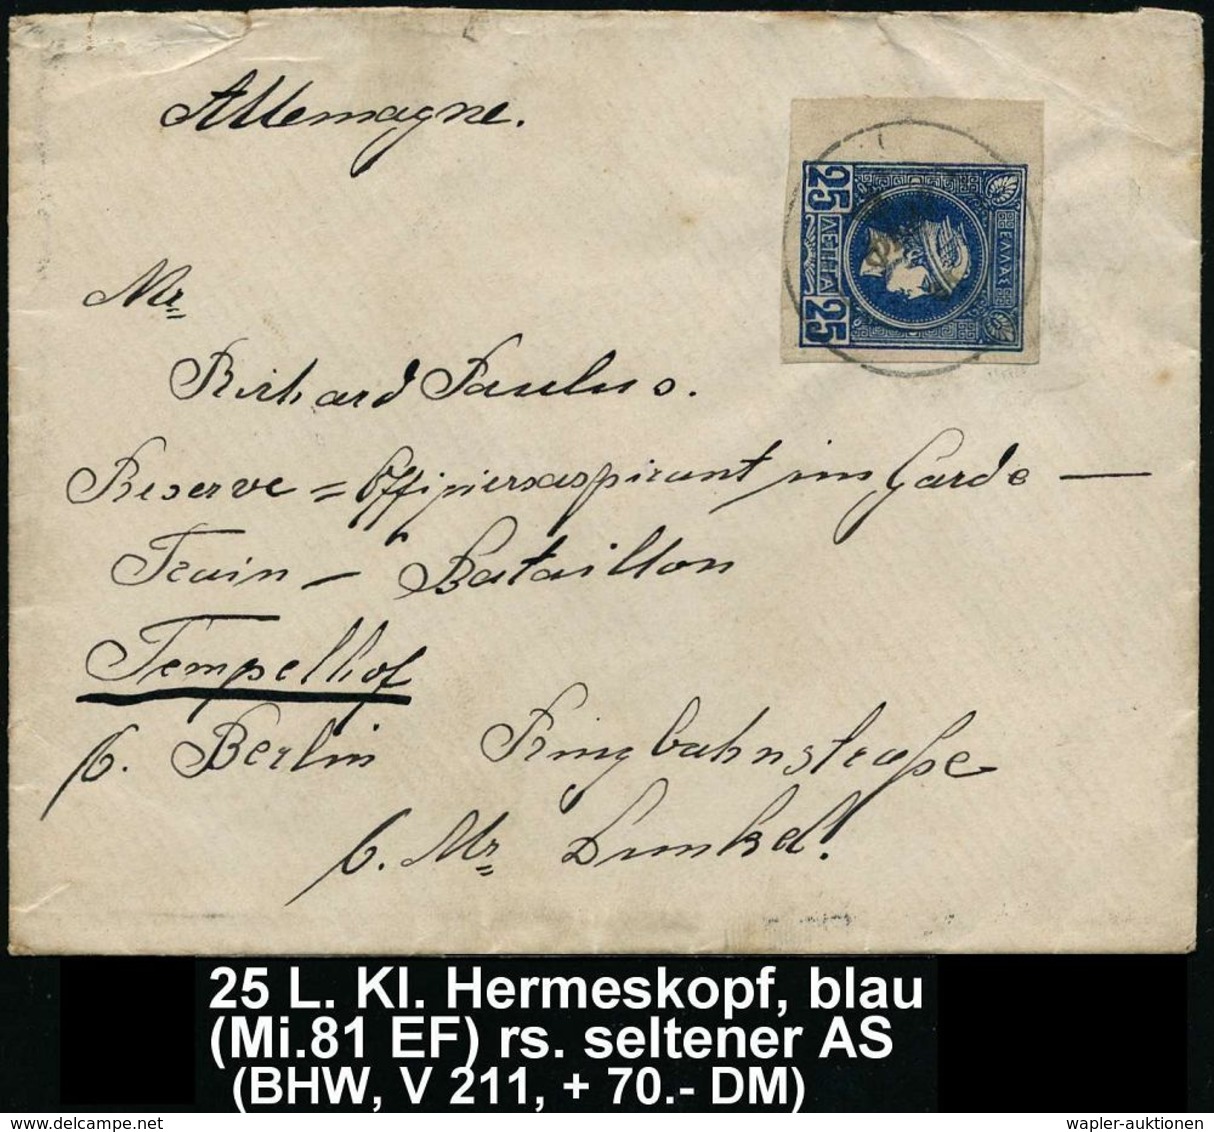 Allemagne.
25 ΛΕΠΤΑ 25
ΕΛΛΑΣ
Mr
Richard Paulus.
Reserve = Offiziersaspirant im Garde —
Train – Bataillon
Tempelhof
b. Berlin Ringbahnstraße
b. Mr Dunkel!
25 L. Kl. Hermeskopf, blau
(Mi.81 EF) rs. seltener AS
(BHW, V 211, + 70.- DM)
delcampe.net
wapler-auktionen